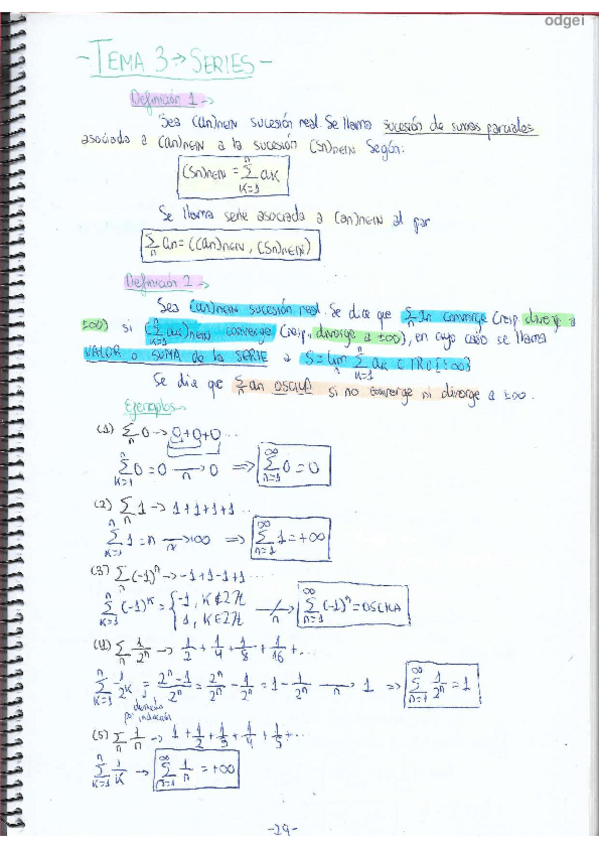 odgei
- TEMA 3 → SERIES -
Definición 1 →
Sea (an)n∈ℕ sucesión real. Se llama sucesión de sumas parciales
asociada a (an)n∈ℕ a la sucesión (Sn)n∈ℕ según:
(Sn)n∈ℕ = ∑_{k=1}^{n} ak
Se llama serie asociada a (an)n∈ℕ al par
∑_n an = ((an)n∈ℕ, (Sn)n∈ℕ)
Definición 2 →
Sea (an)n∈ℕ sucesión real. Se dice que ∑_n an converge (resp. diverge a
±∞) si (∑_{k=1}^{n} ak)n∈ℕ converge (resp., diverge a ±∞), en cuyo caso se llama
VALOR o SUMA de la SERIE a S = lim_n ∑_{k=1}^{n} ak ∈ ℝ∪{±∞}
Se dice que ∑_n an OSCILA si no converge ni diverge a ±∞.
Ejemplos →
(1) ∑_n 0 → 0+0+0...
∑_{k=1}^{n} 0 = 0 →_n 0 ⇒ ∑_{n=1}^{∞} 0 = 0
(2) ∑_n 1 → 1+1+1+1...
∑_{k=1}^{n} 1 = n →_n +∞ ⇒ ∑_{n=1}^{∞} 1 = +∞
(3) ∑_n (-1)^n → -1+1-1+1...
∑_{k=1}^{n} (-1)^k = { -1, k∉2ℤ
1, k∈2ℤ ↛_n ∑_{n=1}^{∞} (-1)^n = OSCILA
(4) ∑_n 1/2^n → 1/2 + 1/4 + 1/8 + 1/16 + ...
∑_{k=1}^{n} 1/2^k = (2^n-1)/2^n = 2^n/2^n - 1/2^n = 1 - 1/2^n →_n 1 ⇒ ∑_{n=1}^{∞} 1/2^n = 1
por inducción
(5) ∑_n 1/n → 1 + 1/2 + 1/3 + 1/4 + 1/5 + ...
∑_{k=1}^{n} 1/k → ∑_{n=1}^{∞} 1/n = +∞
-29-